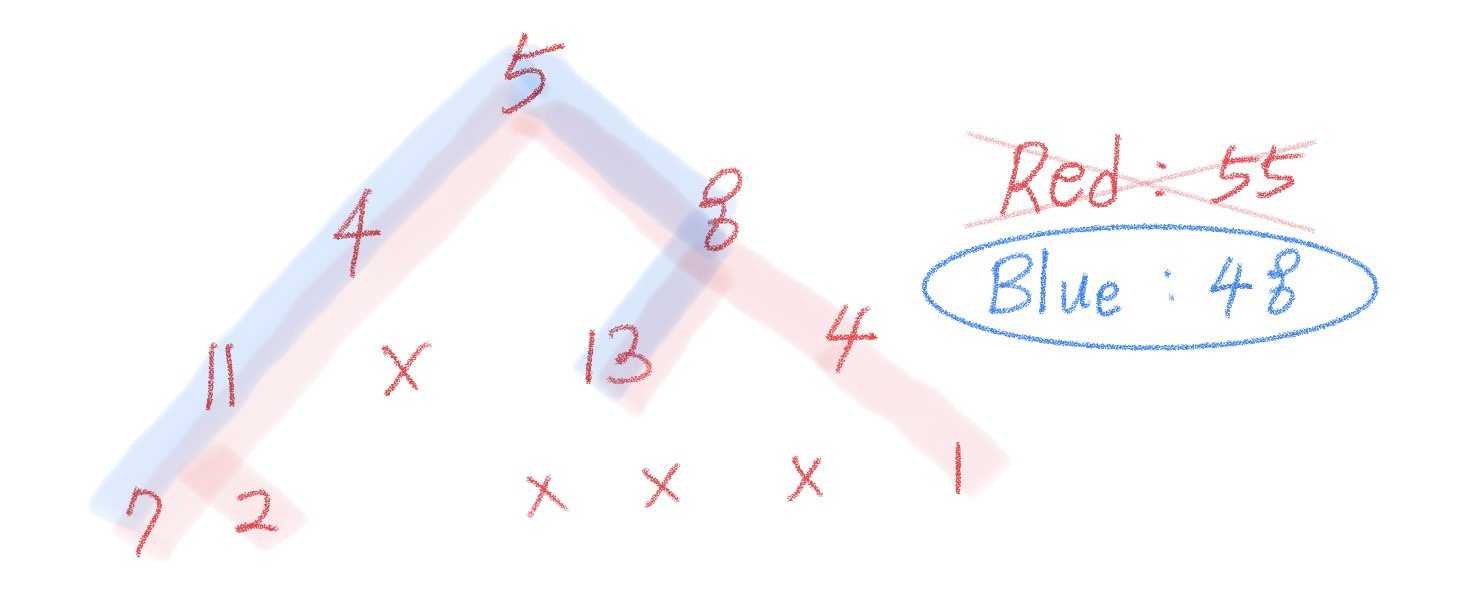 5
4 8
11 x 13 4
7 2 x x x 1
Red : 55
Blue : 48